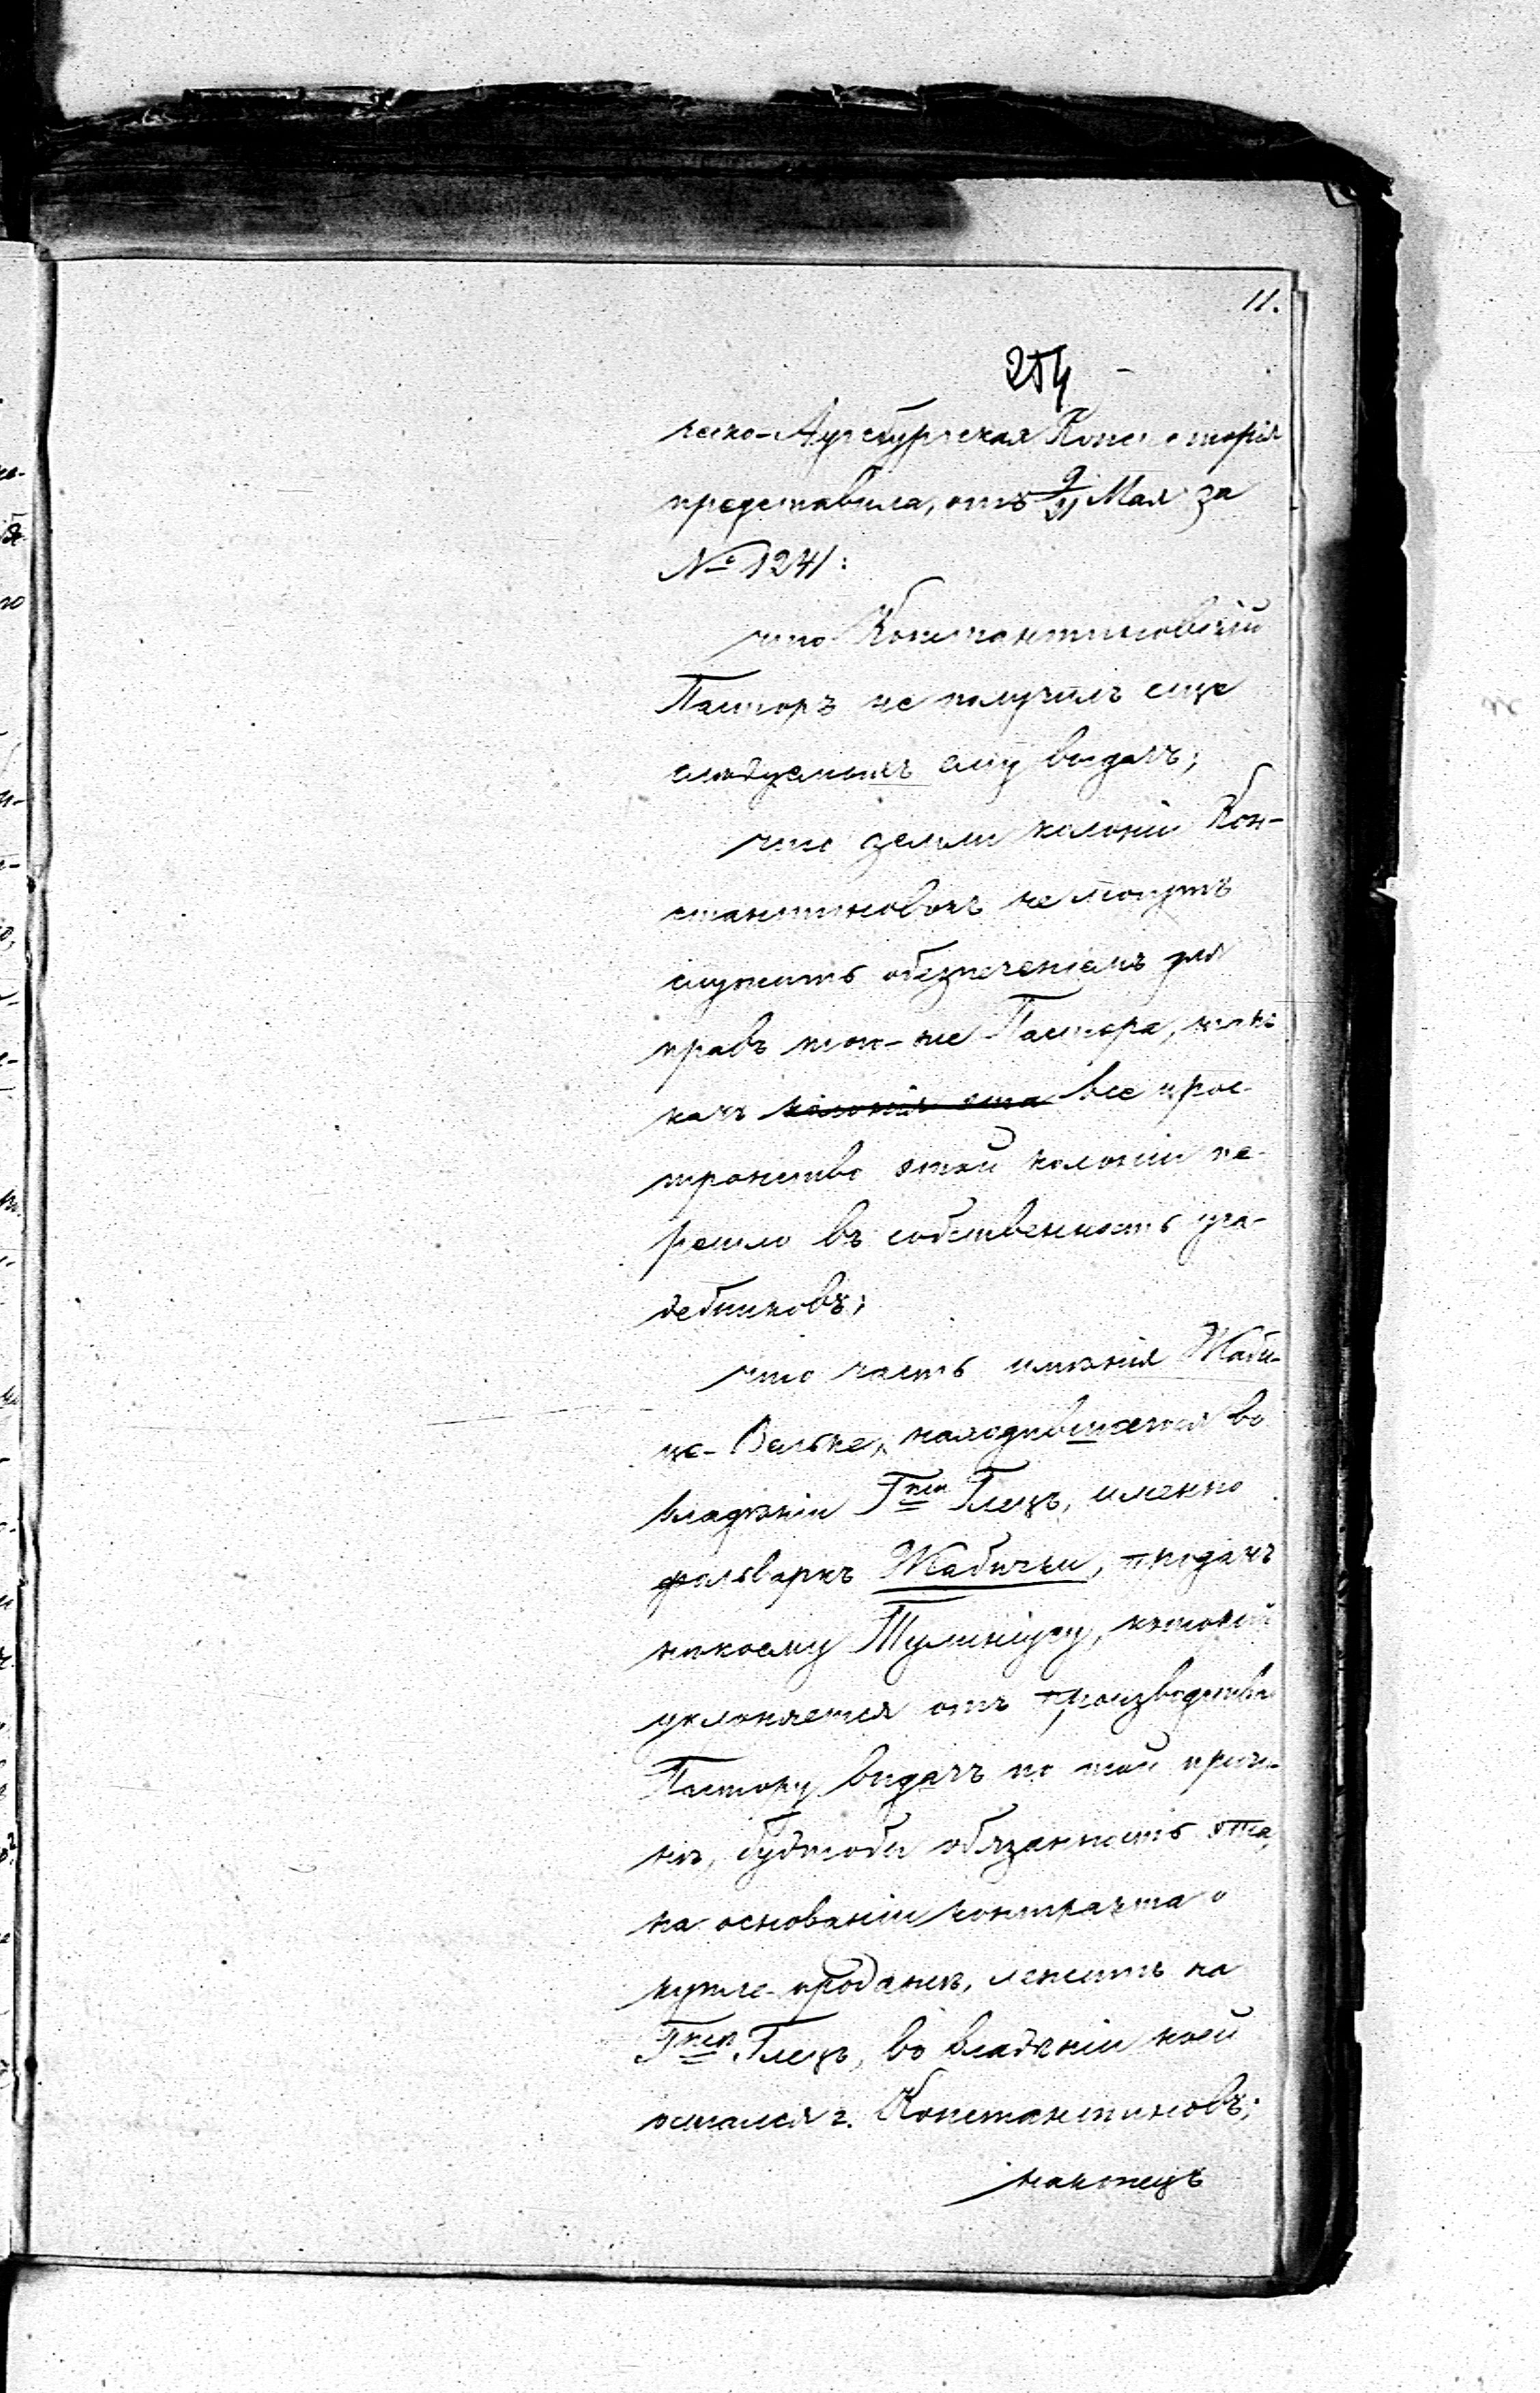 11.
254
ческо-Аугсбургская Консисторія
представила, отъ 9/21 Мая за
№ 1241:
что Константиновскій
Пасторъ не получилъ еще
слѣдуемыхъ ему выдачъ;
что земли колоніи Кон-
стантиновъ не могутъ
служить обезпеченіемъ для
правъ того-же Пастора, такъ
какъ колонія эта все прос-
транство этой колоніи пе-
решло въ собственность уса-
дебниковъ;
что часть имѣнія Жаби-
це-Вельке, находившегося во
владѣніи Г-жи Глецъ, именно
фольваркъ Жабички, проданъ
нѣкоему Тулиніусу, который
уклоняется отъ производства
Пастору выдачъ по той причи-
нѣ, будтобы обязанность эта,
на основаніи контракта о
купле-продажѣ, лежитъ на
Г-жѣ Глецъ, во владѣніи коей
остался г. Константиновъ;
наконецъ